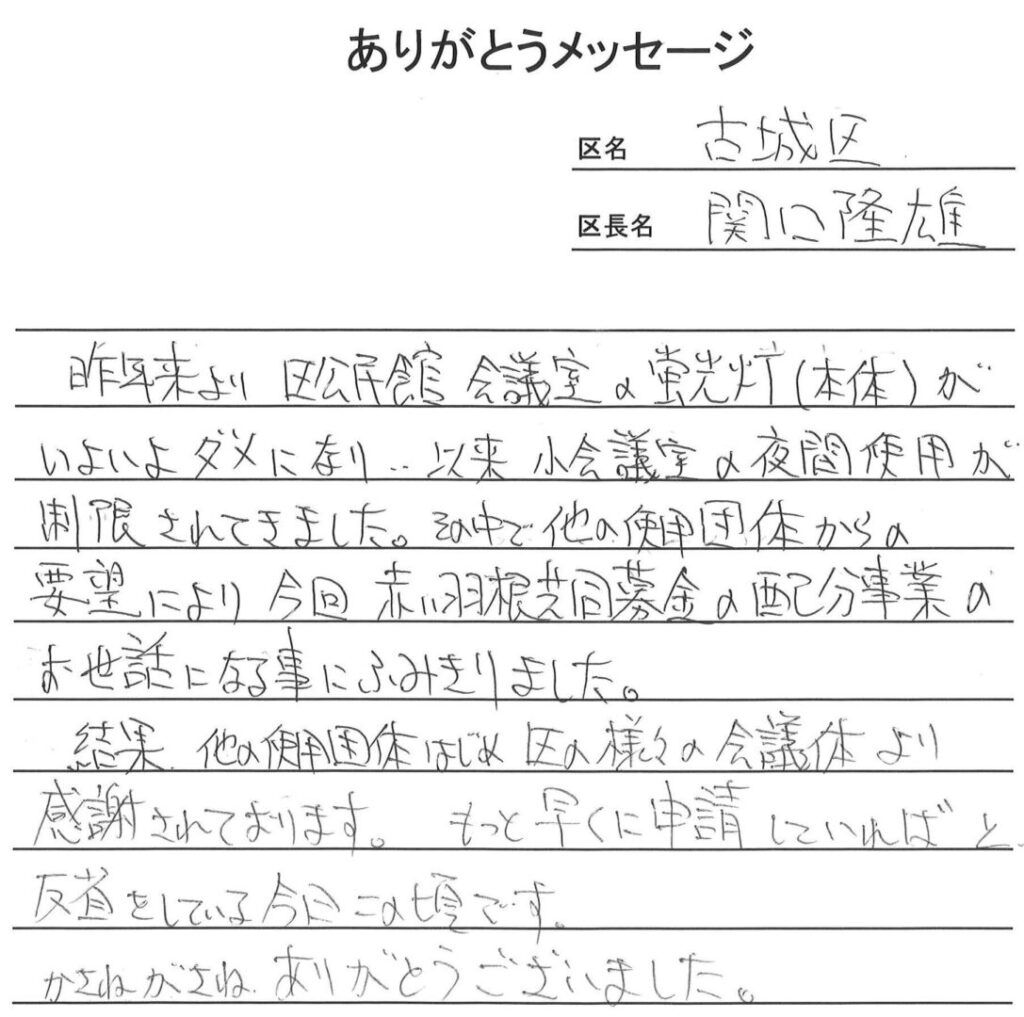 ありがとうメッセージ
区名 古城区
区長名 関口隆雄
昨年来より 区公民館 会議室の蛍光灯(本体)が
いよいよダメになり‥以来 小会議室の夜間使用が
制限されてきました。その中で他の使用団体からの
要望により今回 赤い羽根共同募金の配分事業の
お世話になる事にふみきりました。
結果、他の使用団体はじめ 区の様々の会議体より
感謝されております。 もっと早くに申請していればと、
反省をしている今日この頃です。
かさねがさね、ありがとうございました。